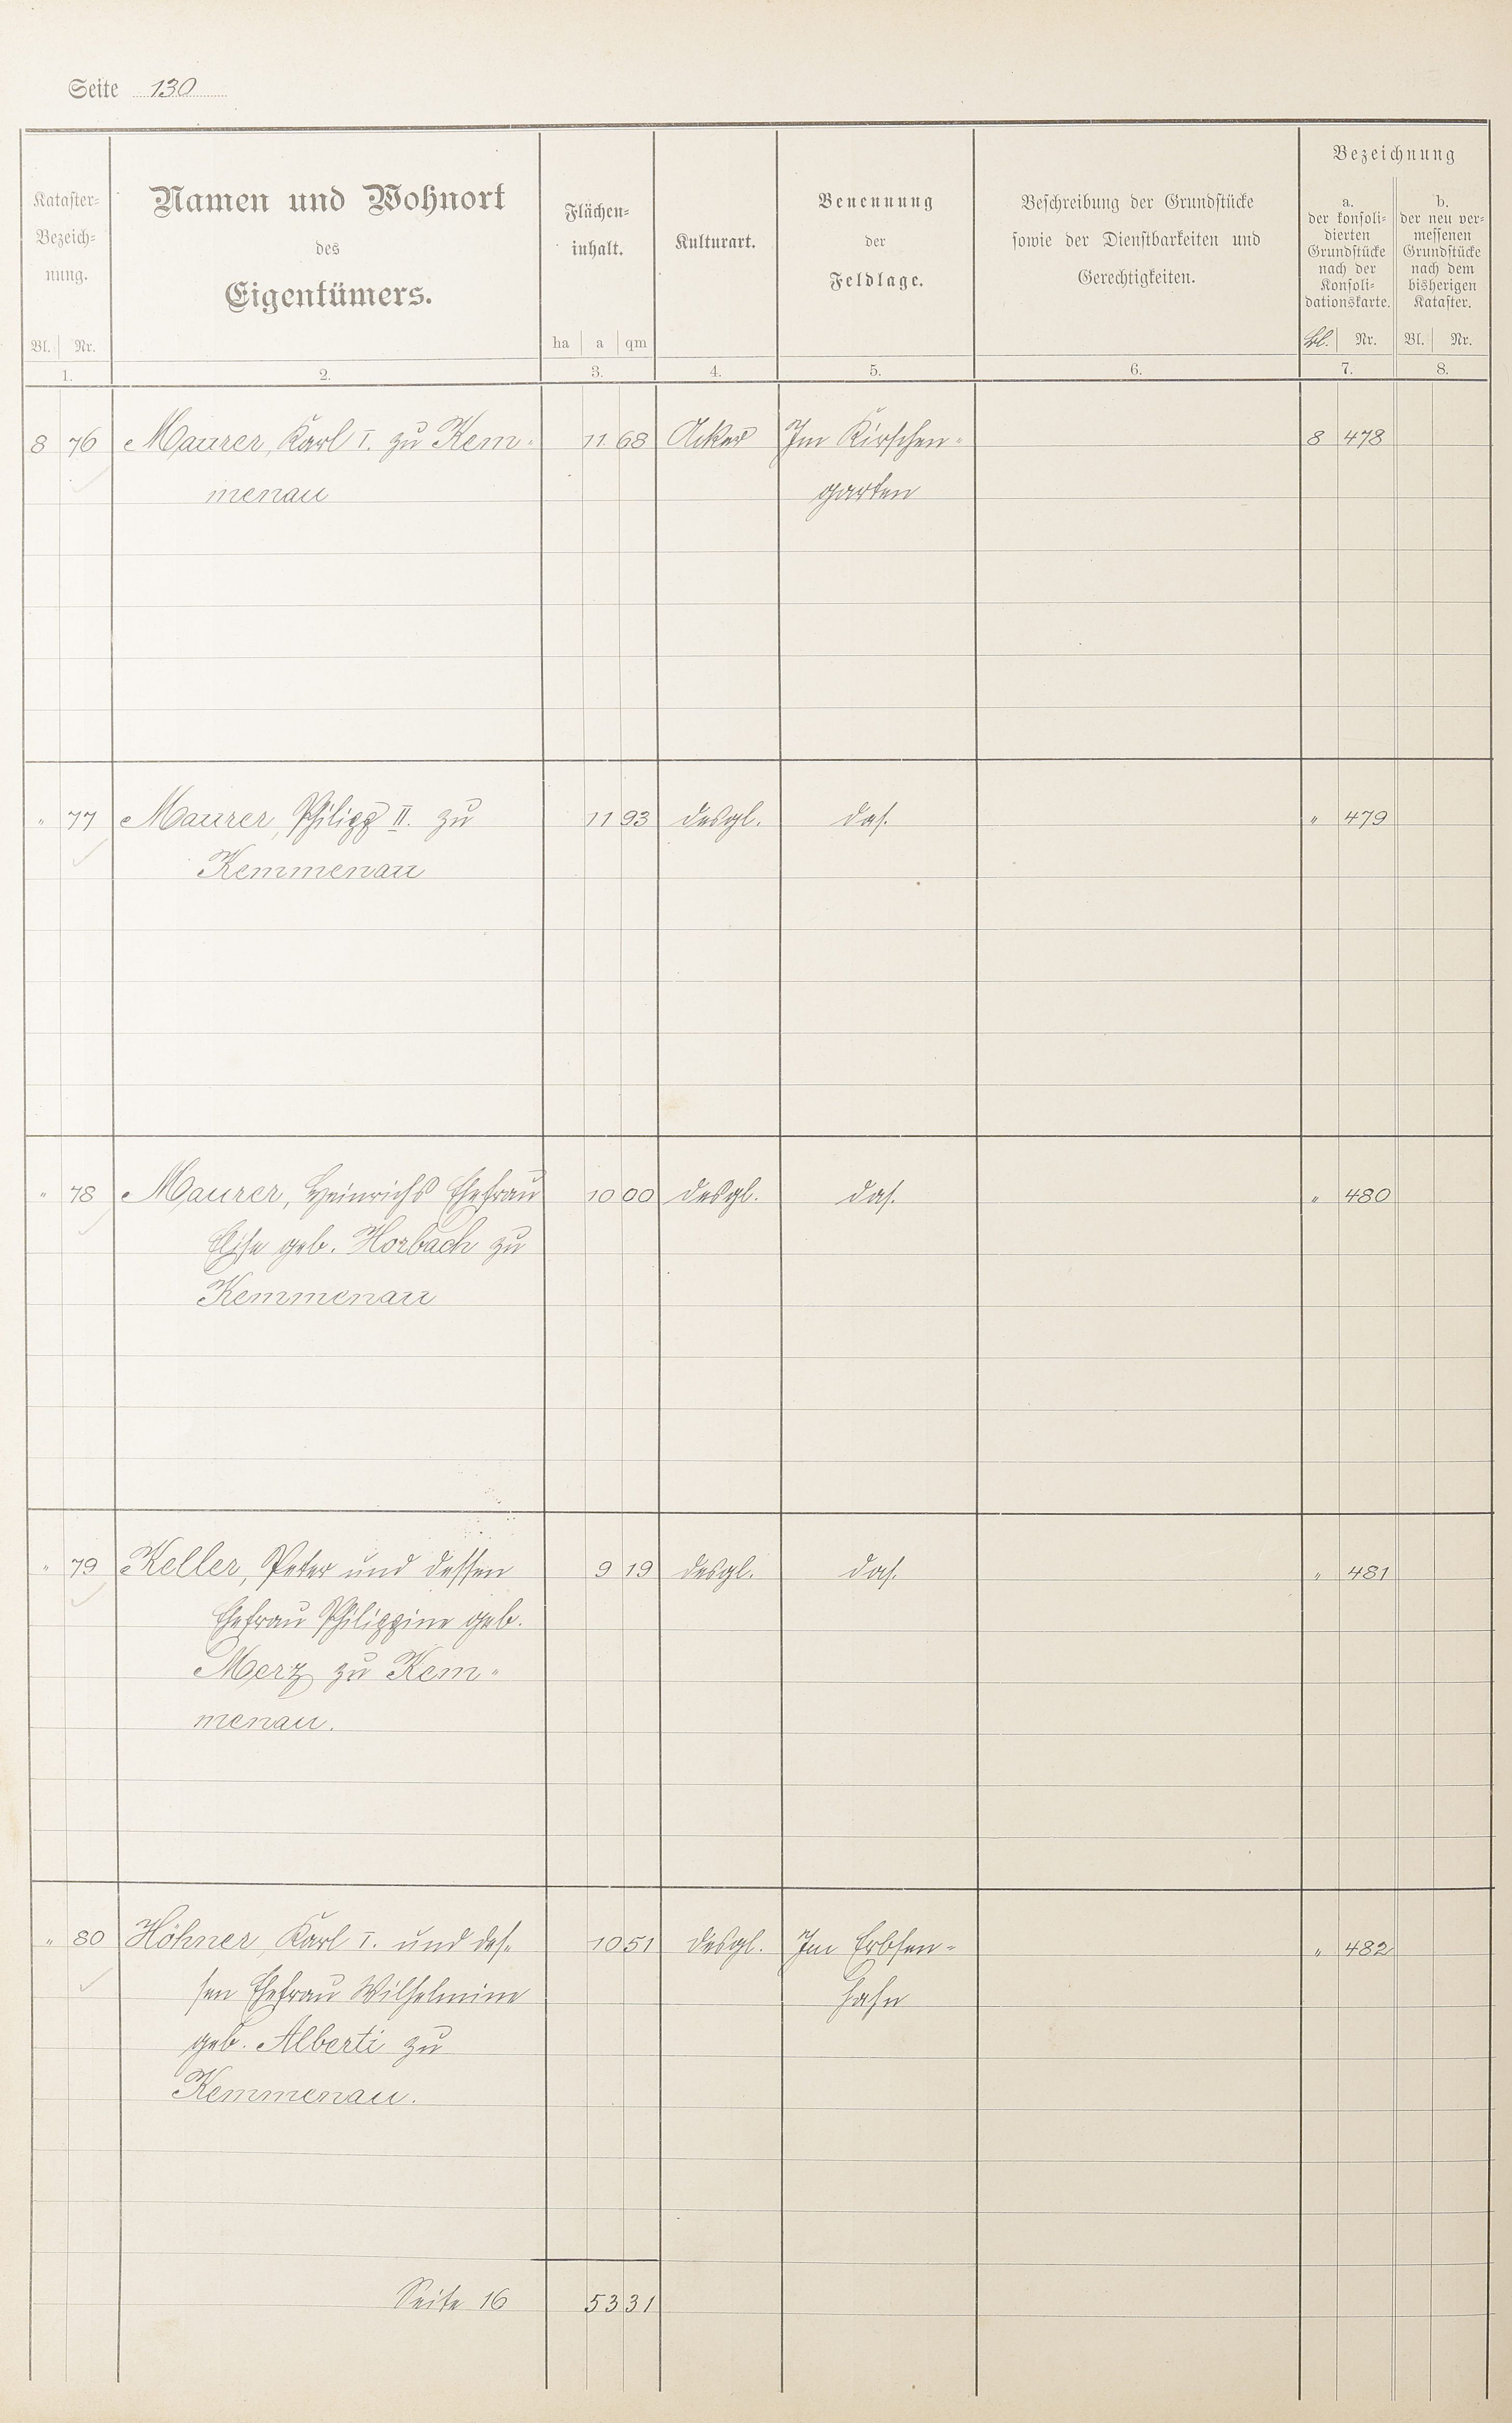 Seite 130
Kataster-
Bezeich-
nung.
Bl. Nr.
1.
Namen und Wohnort
des
Eigentümers.
2.
Flächen-
inhalt.
ha a qm
3.
Kulturart.
4.
Benennung
der
Feldlage.
5.
Beschreibung der Grundstücke
sowie der Dienstbarkeiten und
Gerechtigkeiten.
6.
Bezeichnung
a.
der konsoli-
dierten
Grundstücke
nach der
Konsoli-
dationskarte.
Bl. Nr.
7.
b.
der neu ver-
messenen
Grundstücke
nach dem
bisherigen
Kataster.
Bl. Nr.
8.
8 76 Maurer, Karl I. zu Kem- 11 68 Acker Im Kirschen- 8 478
menau garten
" 77 Maurer, Philipp II. zu 11 93 desgl. das. " 479
Kemmenau
" 78 Maurer, Heinrichs Ehefrau 10 00 desgl. das. " 480
Elise geb. Horbach zu
Kemmenau
" 79 Keller, Peter und dessen 9 19 desgl. das. " 481
Ehefrau Philippine geb.
Merz zu Kem-
menau.
" 80 Höhner, Karl I. und des- 10 51 desgl. Im Erbsen- " 482
sen Ehefrau Wilhelmine hahn
geb. Alberti zu
Kemmenau.
Seite 16 53 31